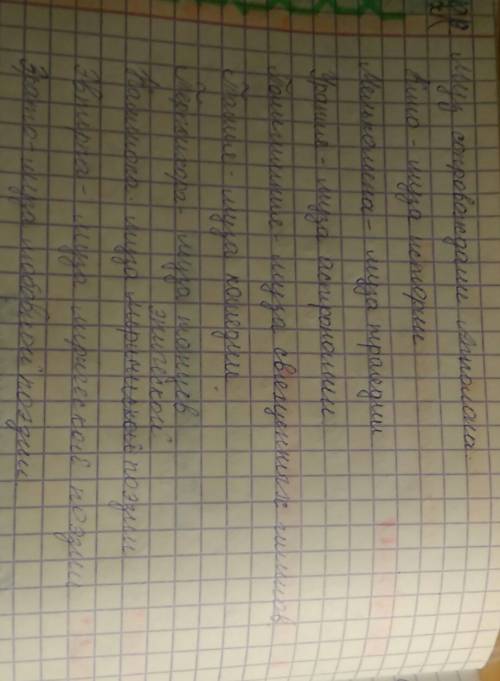 Муз сопровождали Аполлона.
Клио - муза истории
Мельпомена - муза трагедии
Урания - муза астрономии
Полигимния - муза священных гимнов
Талия - муза комедии
Терпсихора - муза танцев
эпической
Каллиопа - муза лирической поэзии
Эвтерпа - муза лирической поэзии
Эрато - муза любовной поэзии